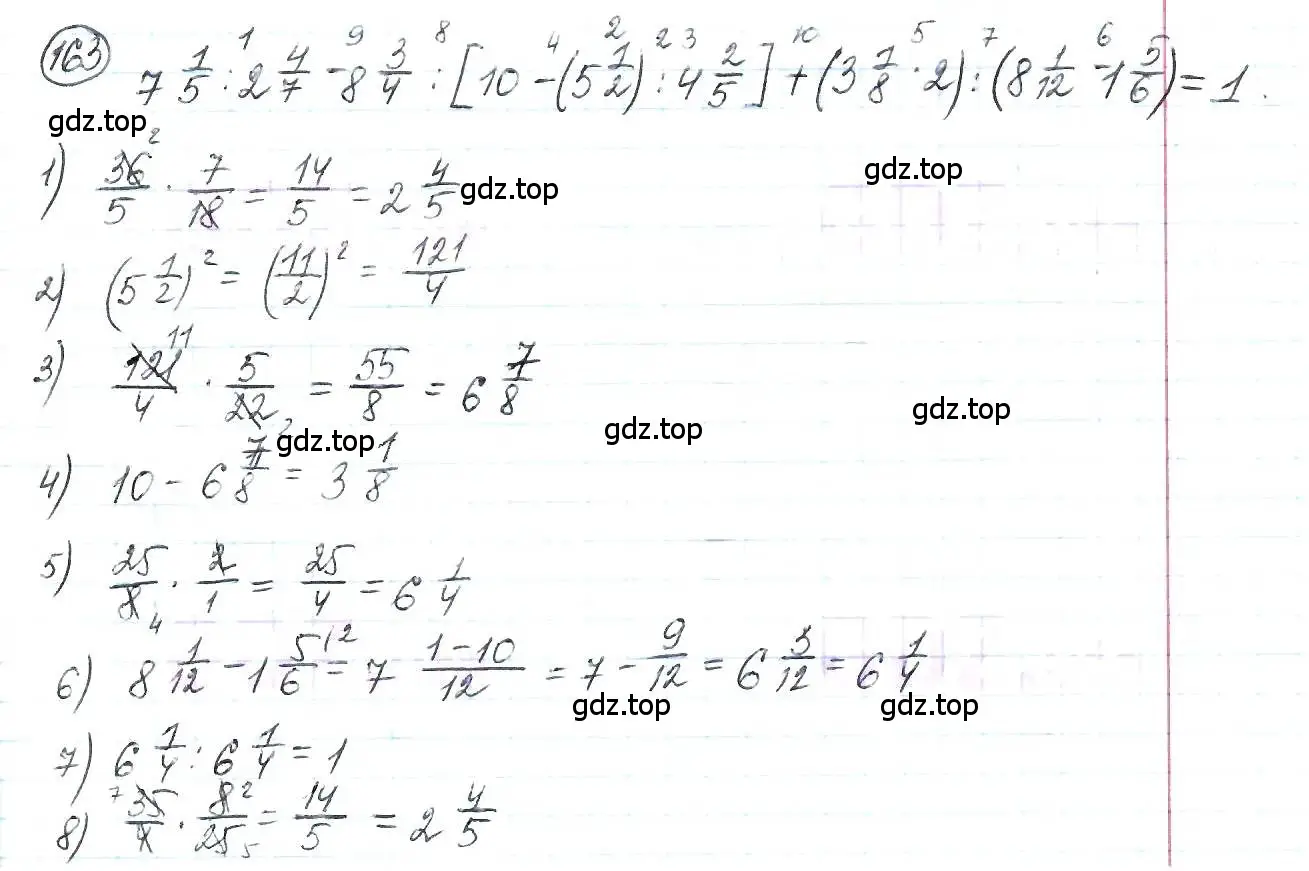 163 7 1/5 : 2 4/7 - 8 3/4 : [10 - (5 1/2)² : 4 2/5] + (3 1/8 · 2) : (8 1/12 - 1 5/6) = 1.
1 9 8 4 2 3 10 5 7 6
gdz.top
1) 36/5 · 7/18 = 14/5 = 2 4/5 gdz.top gdz.top
2) (5 1/2)² = (11/2)² = 121/4
3) 121/4 · 5/22 = 55/8 = 6 7/8
gdz.top gdz.top gdz.top
4) 10 - 6 7/8 = 3 1/8
5) 25/8 · 2/1 = 25/4 = 6 1/4
6) 8 1/12 - 1 5/6 = 7 (1-10)/12 = 7 - 9/12 = 6 3/12 = 6 1/4
gdz.top gdz.top
7) 6 1/4 : 6 1/4 = 1
8) 35/4 · 8/25 = 14/5 = 2 4/5